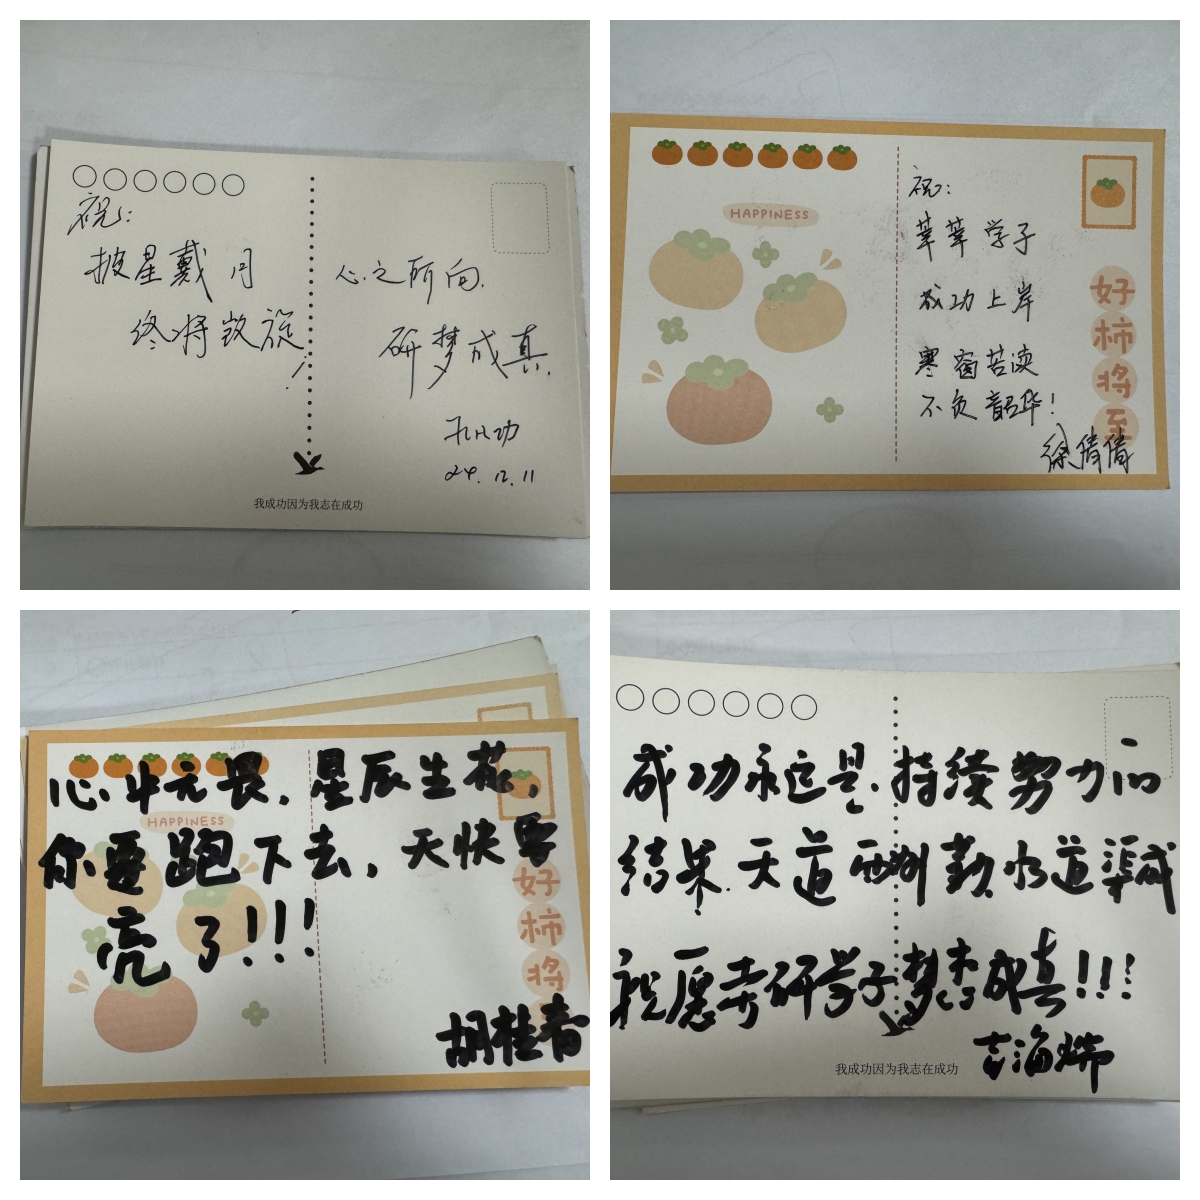 祝:
披星戴月
终将致旋
心之所向.
研梦成真.
孔凡功
24.12.11
我成功因为我志在成功
HAPPINESS
祝:
莘莘学子
成功上岸
寒窗苦读
不负韶华!
好柿将至
徐倩倩
心中无畏,星辰生花,
HAPPINESS
你要跑下去,天快要
亮了!!!
好柿将
胡桂春
成功永远是持续努力的
结果.天道酬勤水道渠成
祝愿考研学子梦想成真!!!
吉海瑞
我成功因为我志在成功